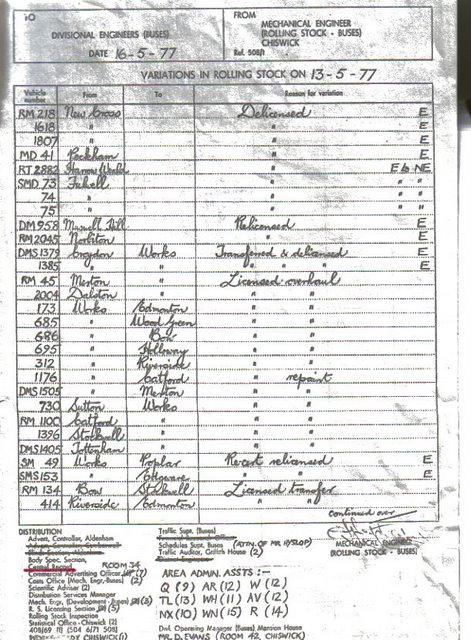 TO
DIVISIONAL ENGINEERS (BUSES)
DATE 16-5-77
FROM
MECHANICAL ENGINEER
(ROLLING STOCK - BUSES)
CHISWICK
Ref. 508/1
VARIATIONS IN ROLLING STOCK ON 13-5-77
Vehicle number From To Reason for variation
RM 218 New Cross Delicensed E
1618 " " E
1807 " " E
MD 41 Peckham " E
RT 2882 Harrow Weald " E to NE
SMD 73 Fulwell " " "
74 " " " "
75 " " " "
DM 958 Muswell Hill Relicensed E
RM 2045 Norbiton " E
DMS 1379 Croydon Works Transferred & delicensed E
1385 " " " " E
RM 45 Merton " Licensed overhaul
2004 Dalston " " "
173 Works Edmonton " "
685 " Wood Green " "
686 " Bow " "
695 " Holloway " "
312 " Riverside " "
1176 " Catford " repaint
DMS 1505 " Merton " "
730 Sutton Works " "
RM 1100 Catford " " "
1396 Stockwell " " "
DMS 1405 Tottenham " " "
SM 49 Works Poplar Recert relicensed E
SMS 153 " Edgware " " E
RM 134 Bow Stockwell Licensed transfer
414 Riverside Edmonton " "
continued over
MECHANICAL ENGINEER
(ROLLING STOCK - BUSES)
DISTRIBUTION
Advert. Controller, Aldenham
Body Spec. Section,
Central Record ROOM 34
Commercial Advertising Officer (7)
Costs Office (Mech. Engr.-Buses) (2)
Scientific Adviser (2)
Distribution Services Manager
Mech. Engr. (Development - Buses) (3)
R. S. Licensing Section (5)
Rolling Stock Inspection
Statistical Office - Chiswick (2)
Traffic Supt. (Buses)
Schedules Supt. (Buses) (ATTN. OF MR HYSLOP)
Traffic Auditor, Griffith House (2)
AREA ADMIN. ASSTS :-
Q (9) AR (12) W (12)
TL (13) WH (11) AV (12)
NX (10) WN (15) R (14)
Divl. Operating Manager (Buses) Mansion House
MR. D. EVANS (ROOM 42, CHISWICK)